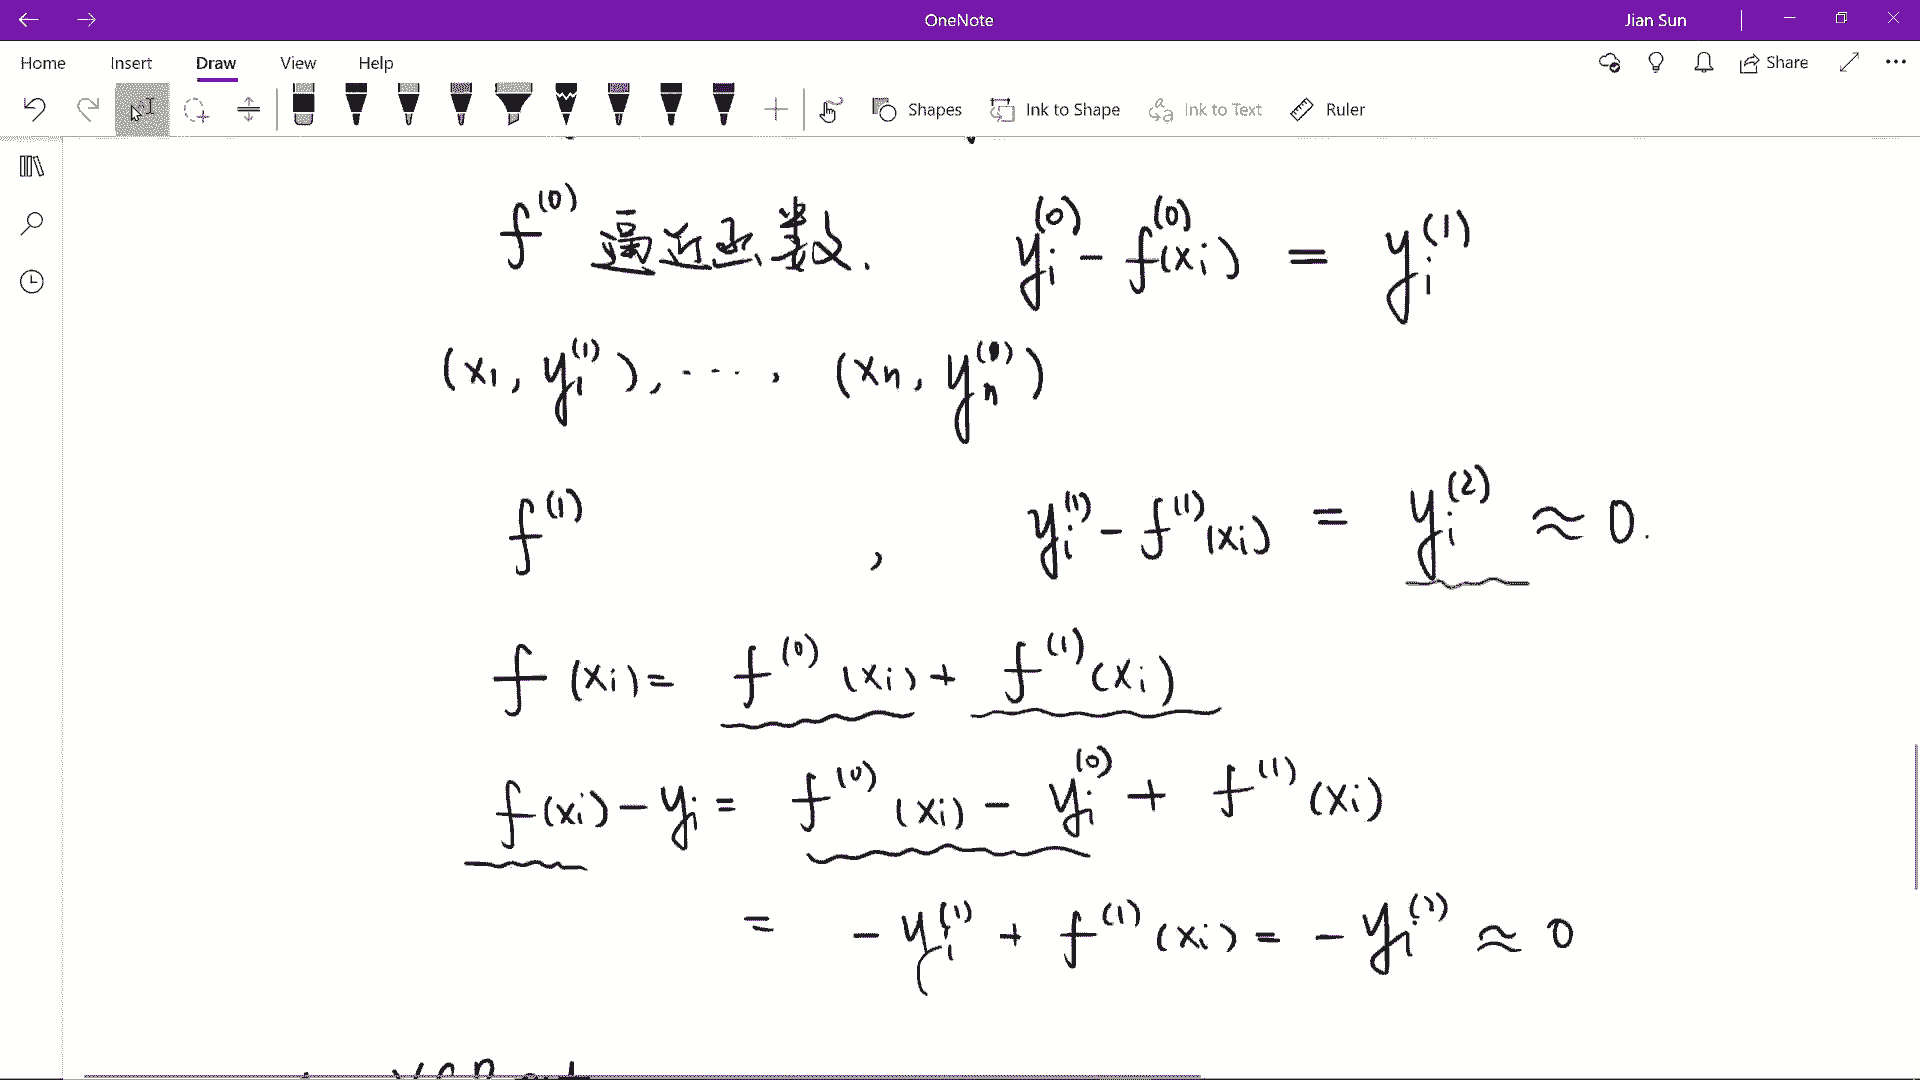 OneNote
Jian Sun
Home Insert Draw View Help
Share
Shapes Ink to Shape Ink to Text Ruler
f^{(0)} 逼近函数. y_i^{(0)} - f^{(0)}(x_i) = y_i^{(1)}
(x_1, y_1^{(1)}), ..... , (x_n, y_n^{(1)})
f^{(1)} , y_i^{(1)} - f^{(1)}(x_i) = y_i^{(2)} ≈ 0.
f(x_i) = f^{(0)}(x_i) + f^{(1)}(x_i)
f(x_i) - y_i = f^{(0)}(x_i) - y_i^{(0)} + f^{(1)}(x_i)
= - y_i^{(1)} + f^{(1)}(x_i) = - y_i^{(2)} ≈ 0